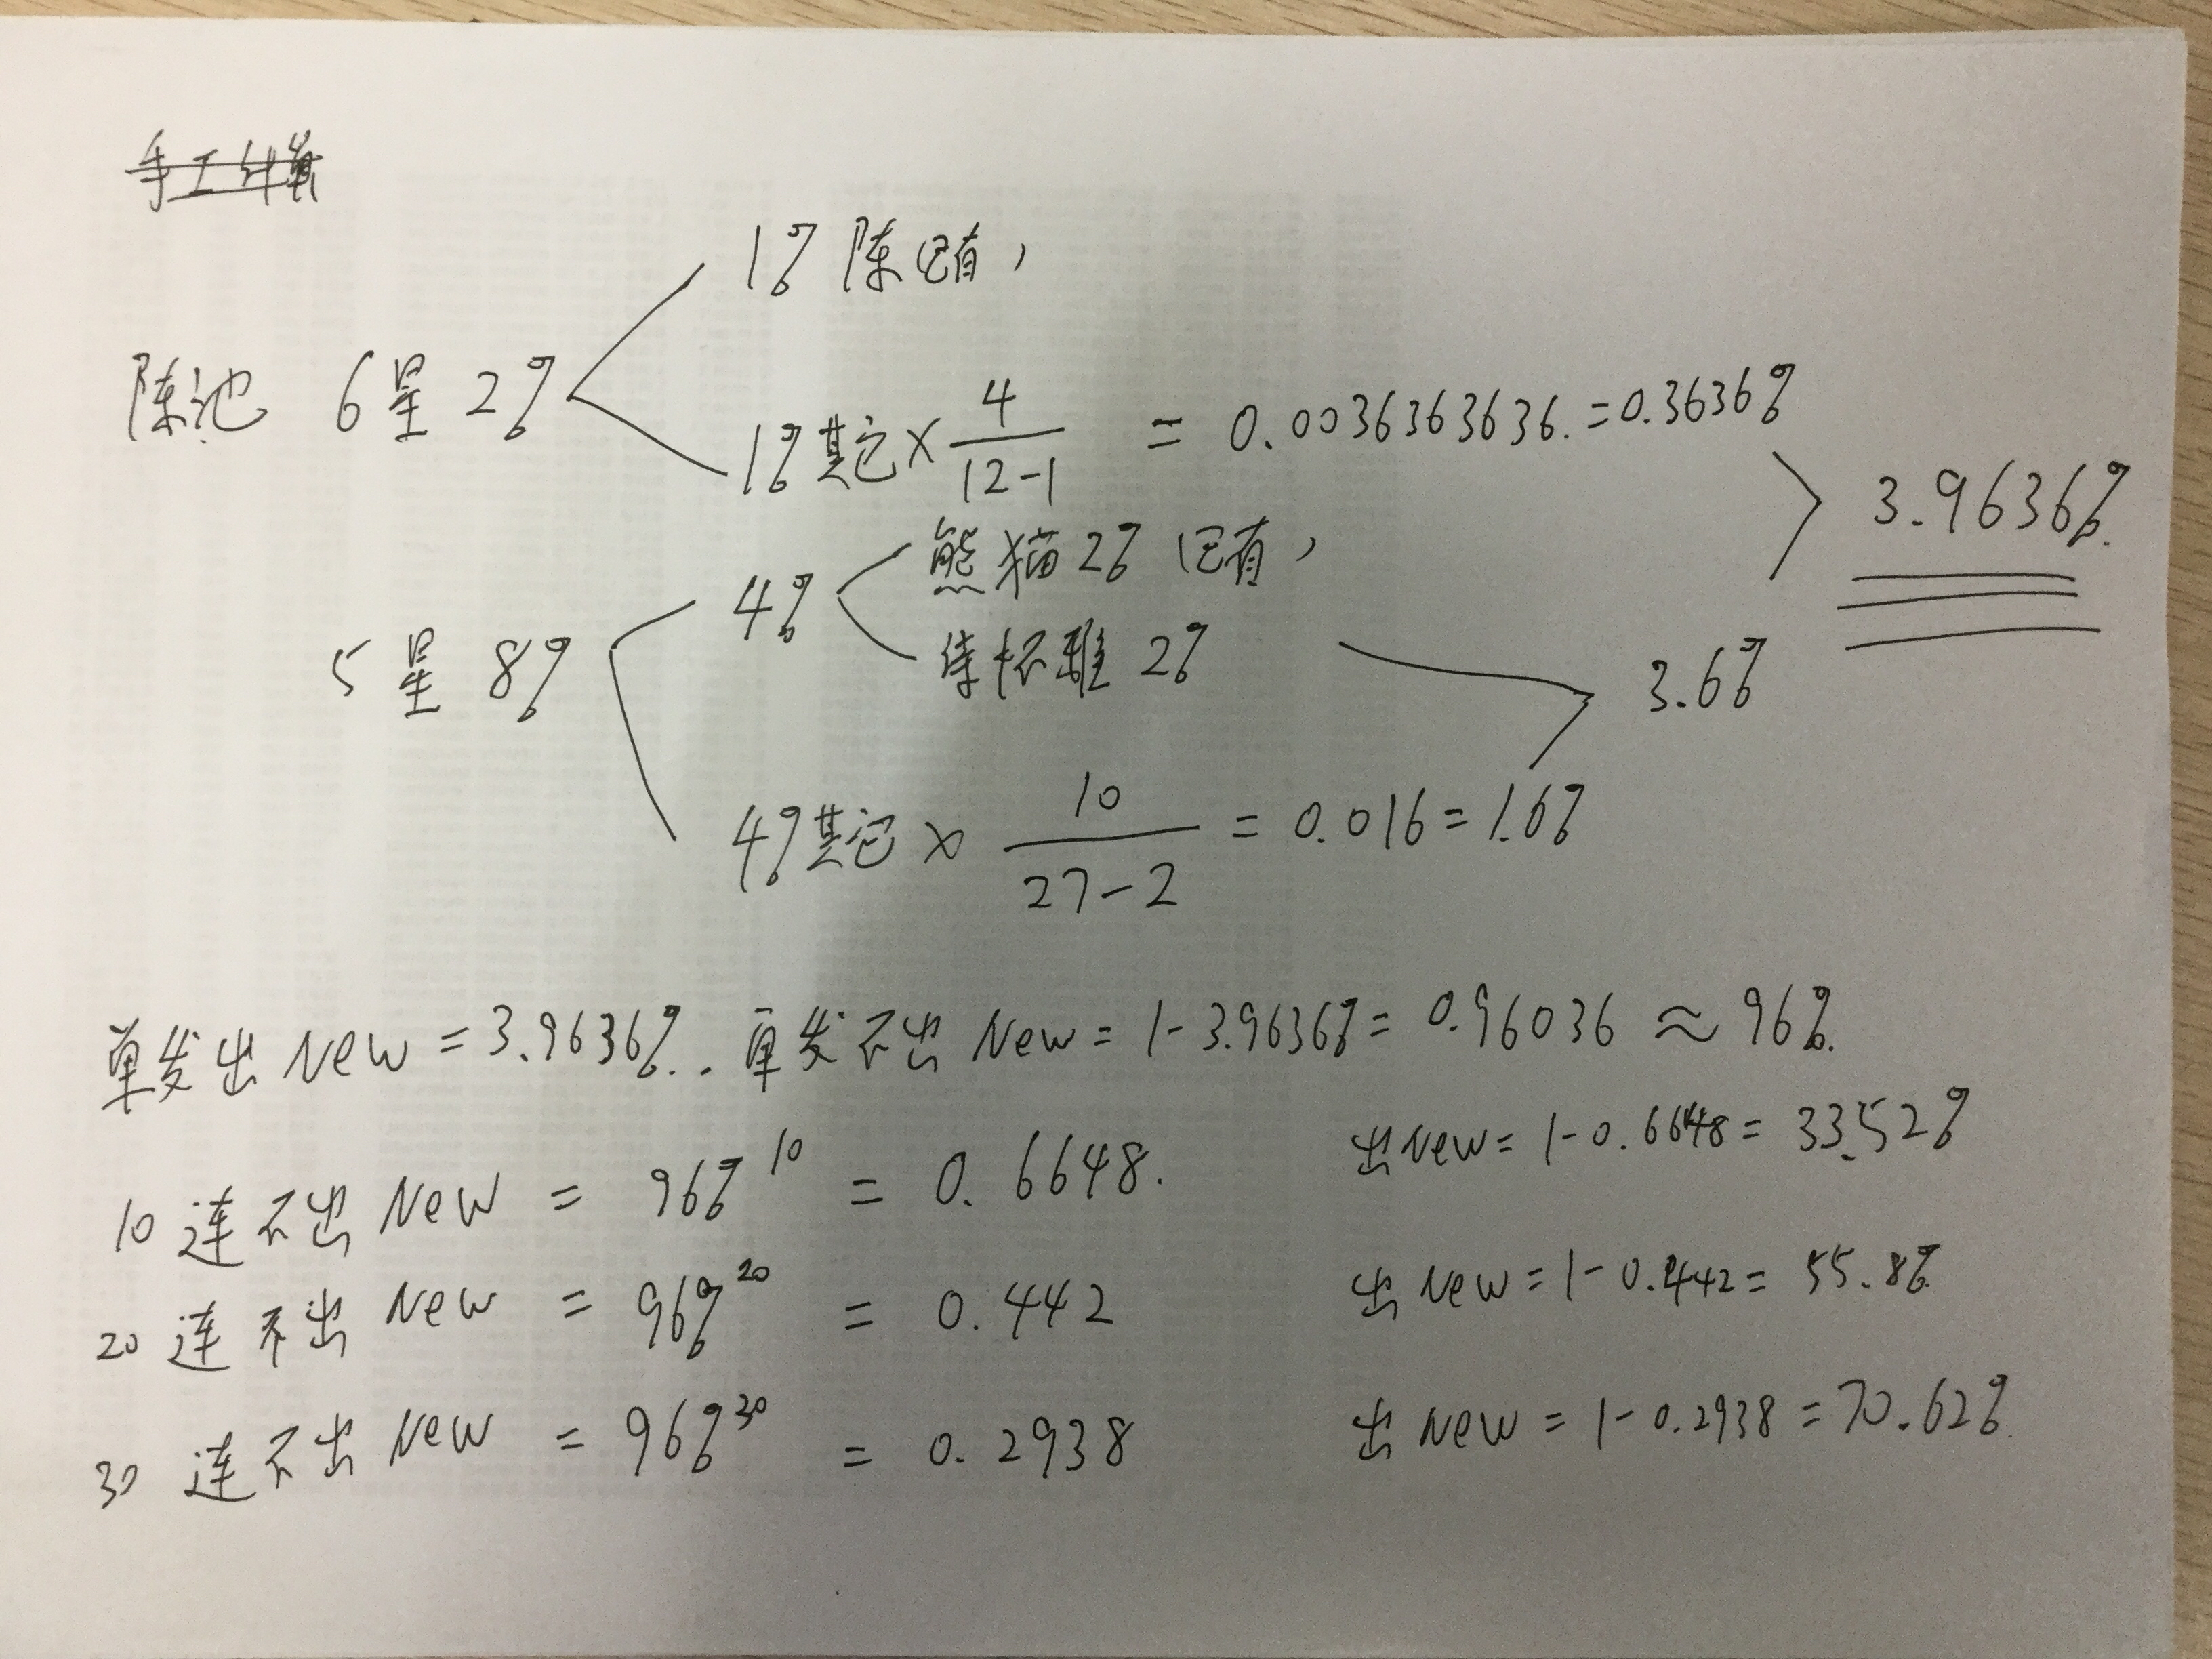 手工计算
1% 陈 已有，
陈池 6星 2%
1% 其它 × 4/(12-1) = 0.0036363636. = 0.3636%
3.9636%.
熊猫 2% 已有，
4%
5星 8%
2%
3.6%
4% 其它 × 10/(27-2) = 0.016 = 1.6%
单发出 New = 3.9636%.. 单发不出 New = 1-3.9636% = 0.96036 ≈ 96%.
10 连不出 New = 96%^10 = 0.6648. 出 New = 1-0.6648 = 33.52%
20 连不出 New = 96%^20 = 0.442 出 New = 1-0.442 = 55.8%
30 连不出 New = 96%^30 = 0.2938 出 New = 1-0.2938 = 70.62%.